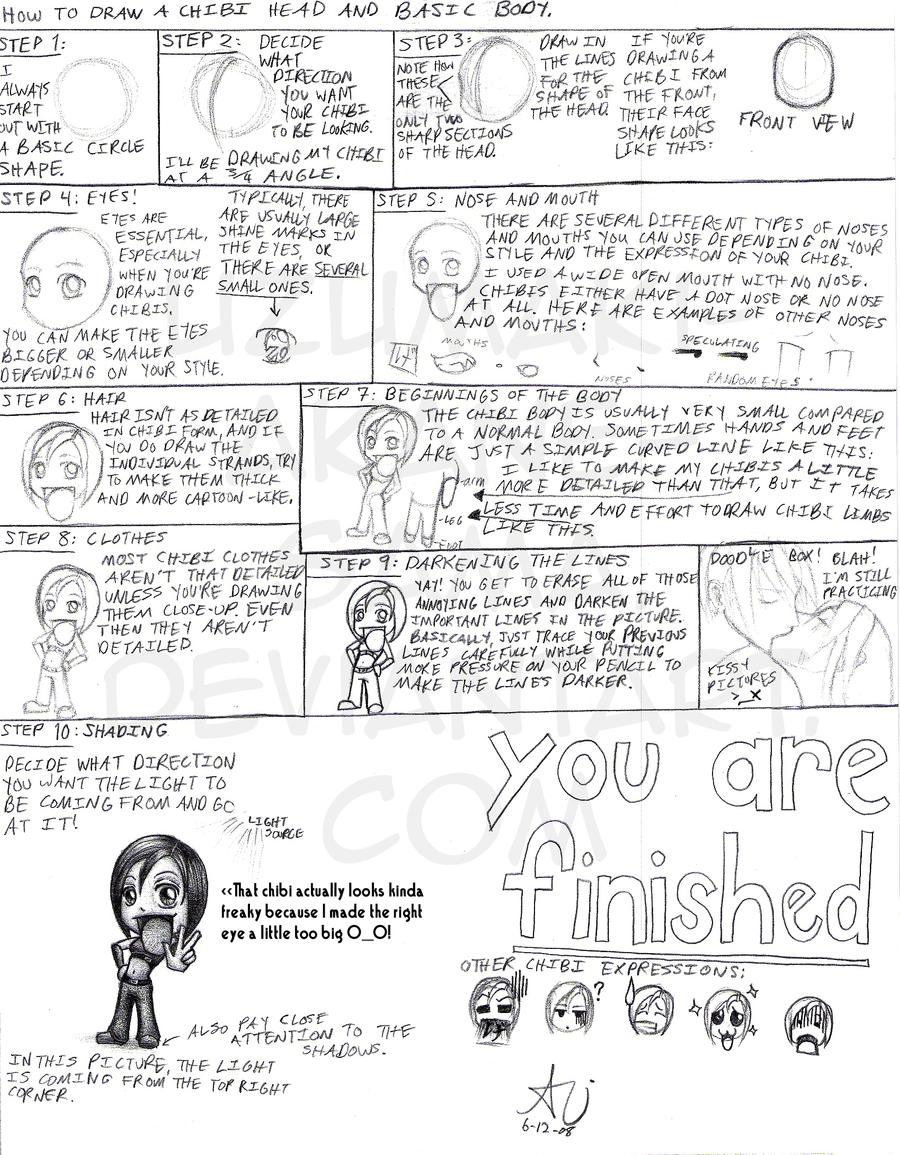 HOW TO DRAW A CHIBI HEAD AND BASIC BODY.
STEP 1:
I
ALWAYS
START
OUT WITH
A BASIC CIRCLE
SHAPE.
STEP 2:
DECIDE
WHAT
DIRECTION
YOU WANT
YOUR CHIBI
TO BE LOOKING.
I'LL BE DRAWING MY CHIBI
AT A 3/4 ANGLE.
STEP 3:
NOTE HOW
THESE
ARE THE
ONLY TWO
SHARP SECTIONS
OF THE HEAD.
DRAW IN
THE LINES
FOR THE
SHAPE OF
THE HEAD.
IF YOU'RE
DRAWING A
CHIBI FROM
THE FRONT,
THEIR FACE
SHAPE LOOKS
LIKE THIS:
FRONT VIEW
STEP 4: EYES!
EYES ARE
ESSENTIAL,
ESPECIALLY
WHEN YOU'RE
DRAWING
CHIBIS.
YOU CAN MAKE THE EYES
BIGGER OR SMALLER
DEPENDING ON YOUR STYLE.
TYPICALLY, THERE
ARE USUALLY LARGE
SHINE MARKS IN
THE EYES, OR
THERE ARE SEVERAL
SMALL ONES.
STEP 5: NOSE AND MOUTH
THERE ARE SEVERAL DIFFERENT TYPES OF NOSES
AND MOUTHS YOU CAN USE DEPENDING ON YOUR
STYLE AND THE EXPRESSION OF YOUR CHIBI.
I USED A WIDE OPEN MOUTH WITH NO NOSE.
CHIBIS EITHER HAVE A DOT NOSE OR NO NOSE
AT ALL. HERE ARE EXAMPLES OF OTHER NOSES
AND MOUTHS:
MOUTHS
NOSES
SPECULATING
RANDOM EYES
STEP 6: HAIR
HAIR ISN'T AS DETAILED
IN CHIBI FORM, AND IF
YOU DO DRAW THE
INDIVIDUAL STRANDS, TRY
TO MAKE THEM THICK
AND MORE CARTOON-LIKE.
STEP 7: BEGINNINGS OF THE BODY
THE CHIBI BODY IS USUALLY VERY SMALL COMPARED
TO A NORMAL BODY. SOMETIMES HANDS AND FEET
ARE JUST A SIMPLE CURVED LINE LIKE THIS:
I LIKE TO MAKE MY CHIBIS A LITTLE
MORE DETAILED THAN THAT, BUT IT TAKES
LESS TIME AND EFFORT TO DRAW CHIBI LIMBS
LIKE THIS.
-arm
-LEG
-FOOT
STEP 8: CLOTHES
MOST CHIBI CLOTHES
AREN'T THAT DETAILED
UNLESS YOU'RE DRAWING
THEM CLOSE-UP. EVEN
THEN THEY AREN'T
DETAILED.
STEP 9: DARKENING THE LINES
YAY! YOU GET TO ERASE ALL OF THOSE
ANNOYING LINES AND DARKEN THE
IMPORTANT LINES IN THE PICTURE.
BASICALLY, JUST TRACE YOUR PREVIOUS
LINES CAREFULLY WHILE PUTTING
MORE PRESSURE ON YOUR PENCIL TO
MAKE THE LINES DARKER.
DOODLE BOX! BLAH!
I'M STILL
PRACTICING
KISSY
PICTURES
>_x
STEP 10: SHADING
DECIDE WHAT DIRECTION
YOU WANT THE LIGHT TO
BE COMING FROM AND GO
AT IT!
LIGHT
SOURCE
<<That chibi actually looks kinda
freaky because I made the right
eye a little too big O_O!
ALSO PAY CLOSE
ATTENTION TO THE
SHADOWS.
IN THIS PICTURE, THE LIGHT
IS COMING FROM THE TOP RIGHT
CORNER.
you are
finished
OTHER CHIBI EXPRESSIONS:
?
6-12-08
DEVIANTART.
COM